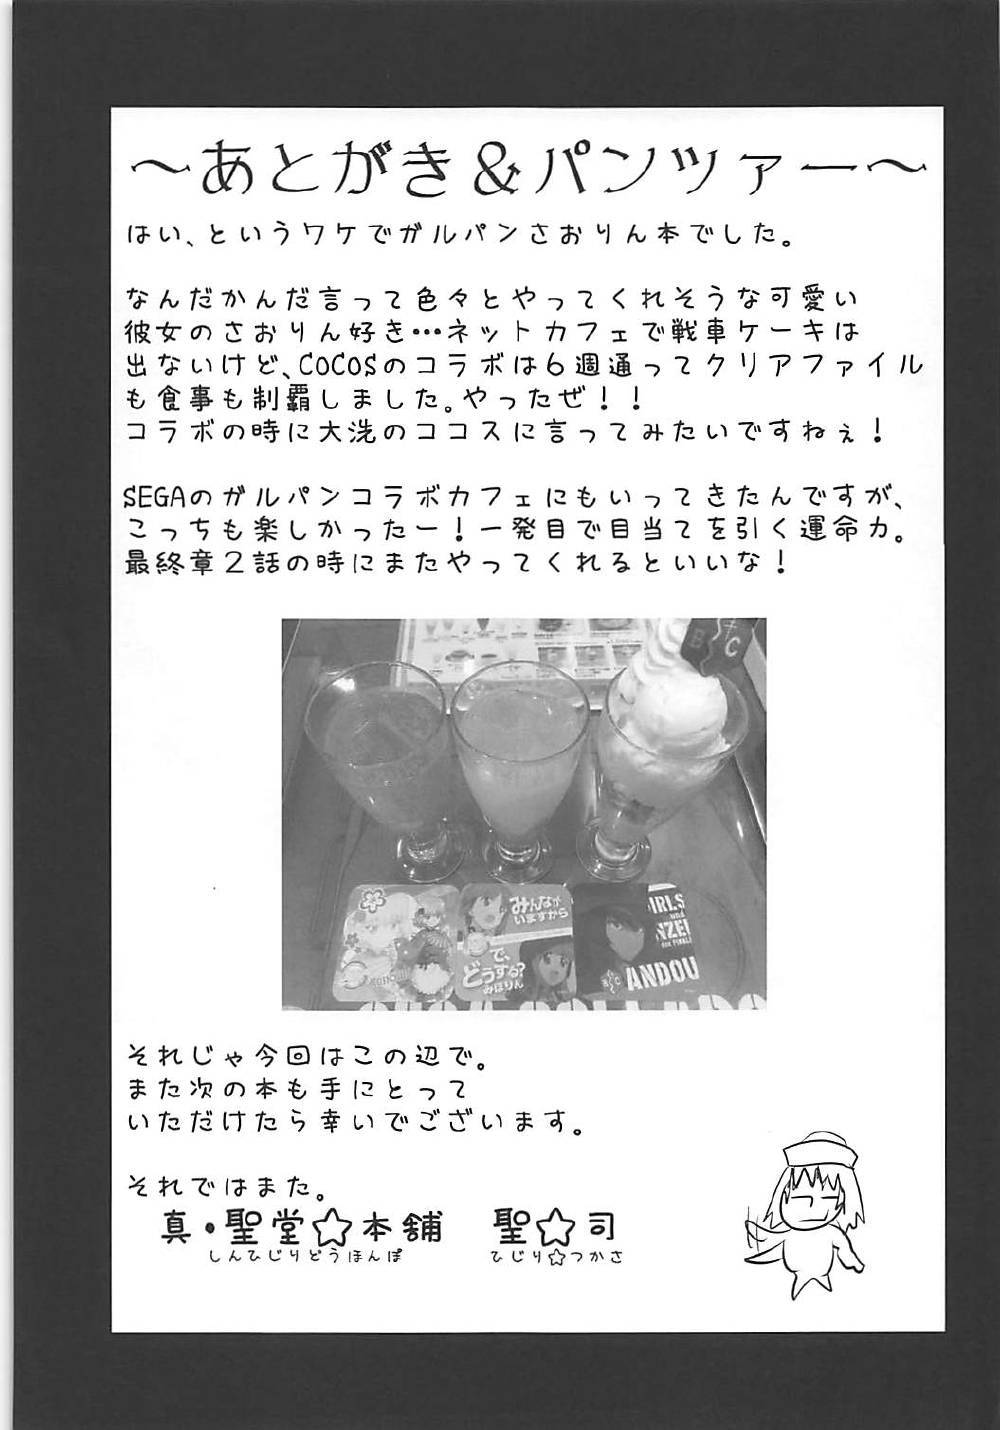 ～あとがき＆パンツァー～
はい、というワケでガルパンさおりん本でした。
なんだかんだ言って色々とやってくれそうな可愛い
彼女のさおりん好き…ネットカフェで戦車ケーキは
出ないけど、COCOSのコラボは６週通ってクリアファイル
も食事も制覇しました。やったぜ！！
コラボの時に大洗のココスに言ってみたいですねぇ！
SEGAのガルパンコラボカフェにもいってきたんですが、
こっちも楽しかったー！一発目で目当てを引く運命力。
最終章２話の時にまたやってくれるといいな！
B C
みんなが
いますから
で、
どうする?
みほりん
IRLS
und
NZE
das FINALE
B C
ANDOU
それじゃ今回はこの辺で。
また次の本も手にとって
いただけたら幸いでございます。
それではまた。
真・聖堂☆本舗　聖☆司
しんひじりどうほんぽ　ひじり☆つかさ